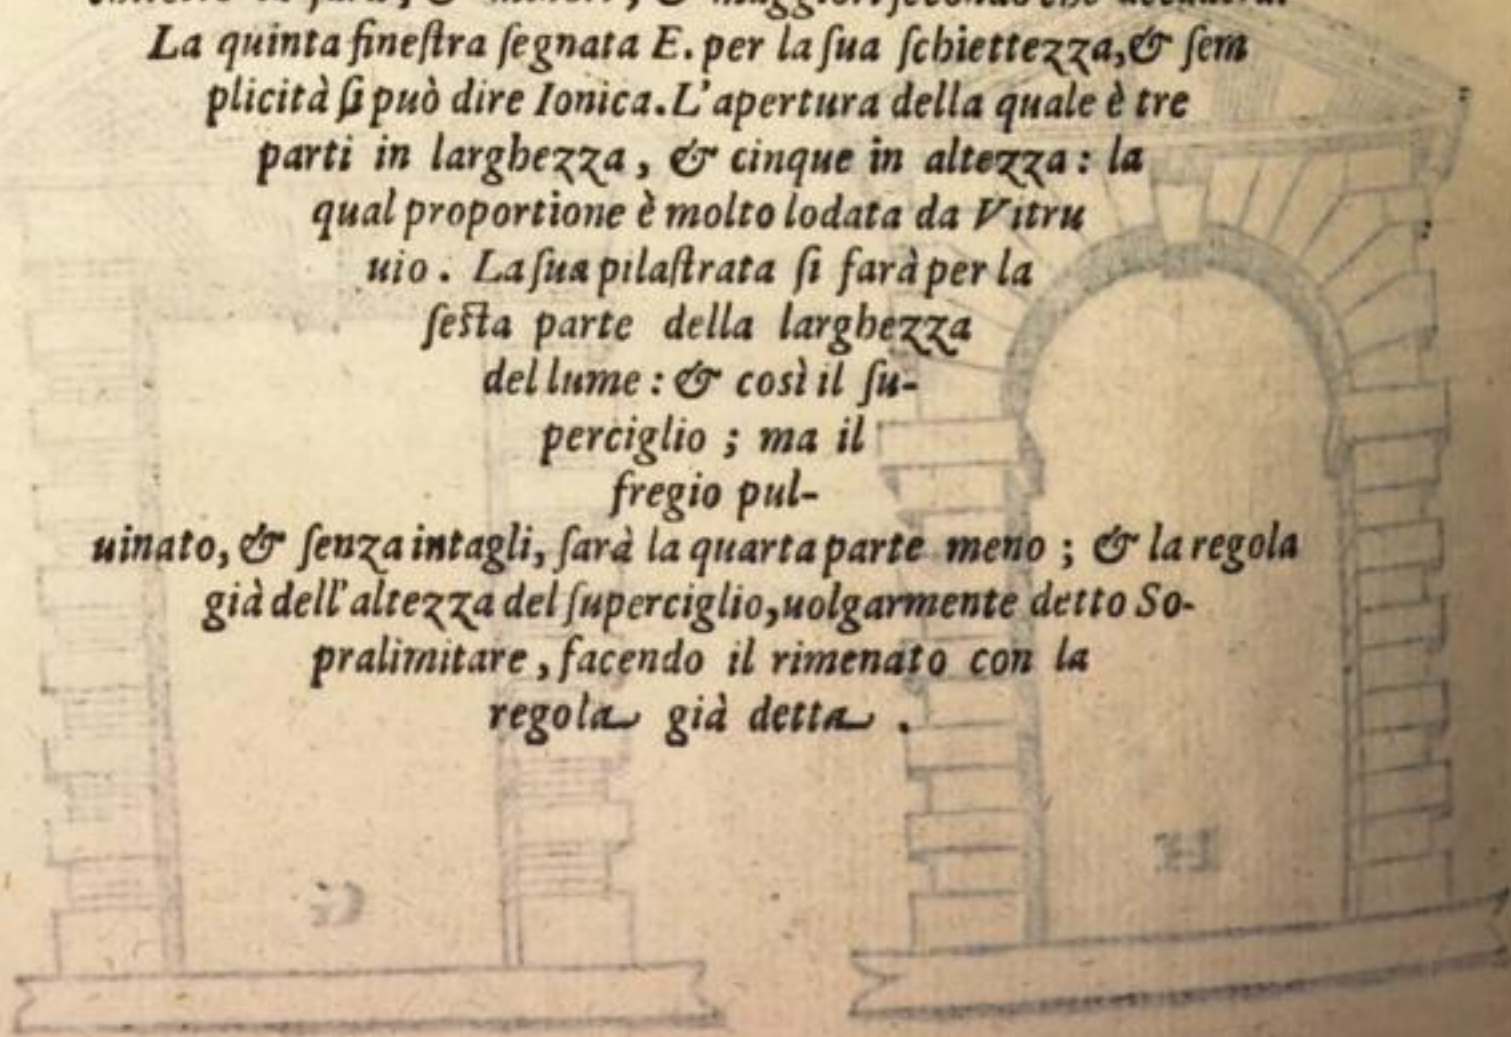 La quinta fineſtra ſegnata E. per la ſua ſchiettezza, & ſem
plicità ſi può dire Ionica. L'apertura della quale è tre
parti in larghezza, & cinque in altezza: la
qual proportione è molto lodata da Vitru
uio. La ſua pilaſtrata ſi farà per la
ſeſta parte della larghezza
del lume: & così il ſu-
perciglio; ma il
fregio pul-
uinato, & ſenza intagli, ſarà la quarta parte meno; & la regola
già dell'altezza del ſuperciglio, uolgarmente detto So-
pralimitare, facendo il rimenato con la
regola già detta.
G H